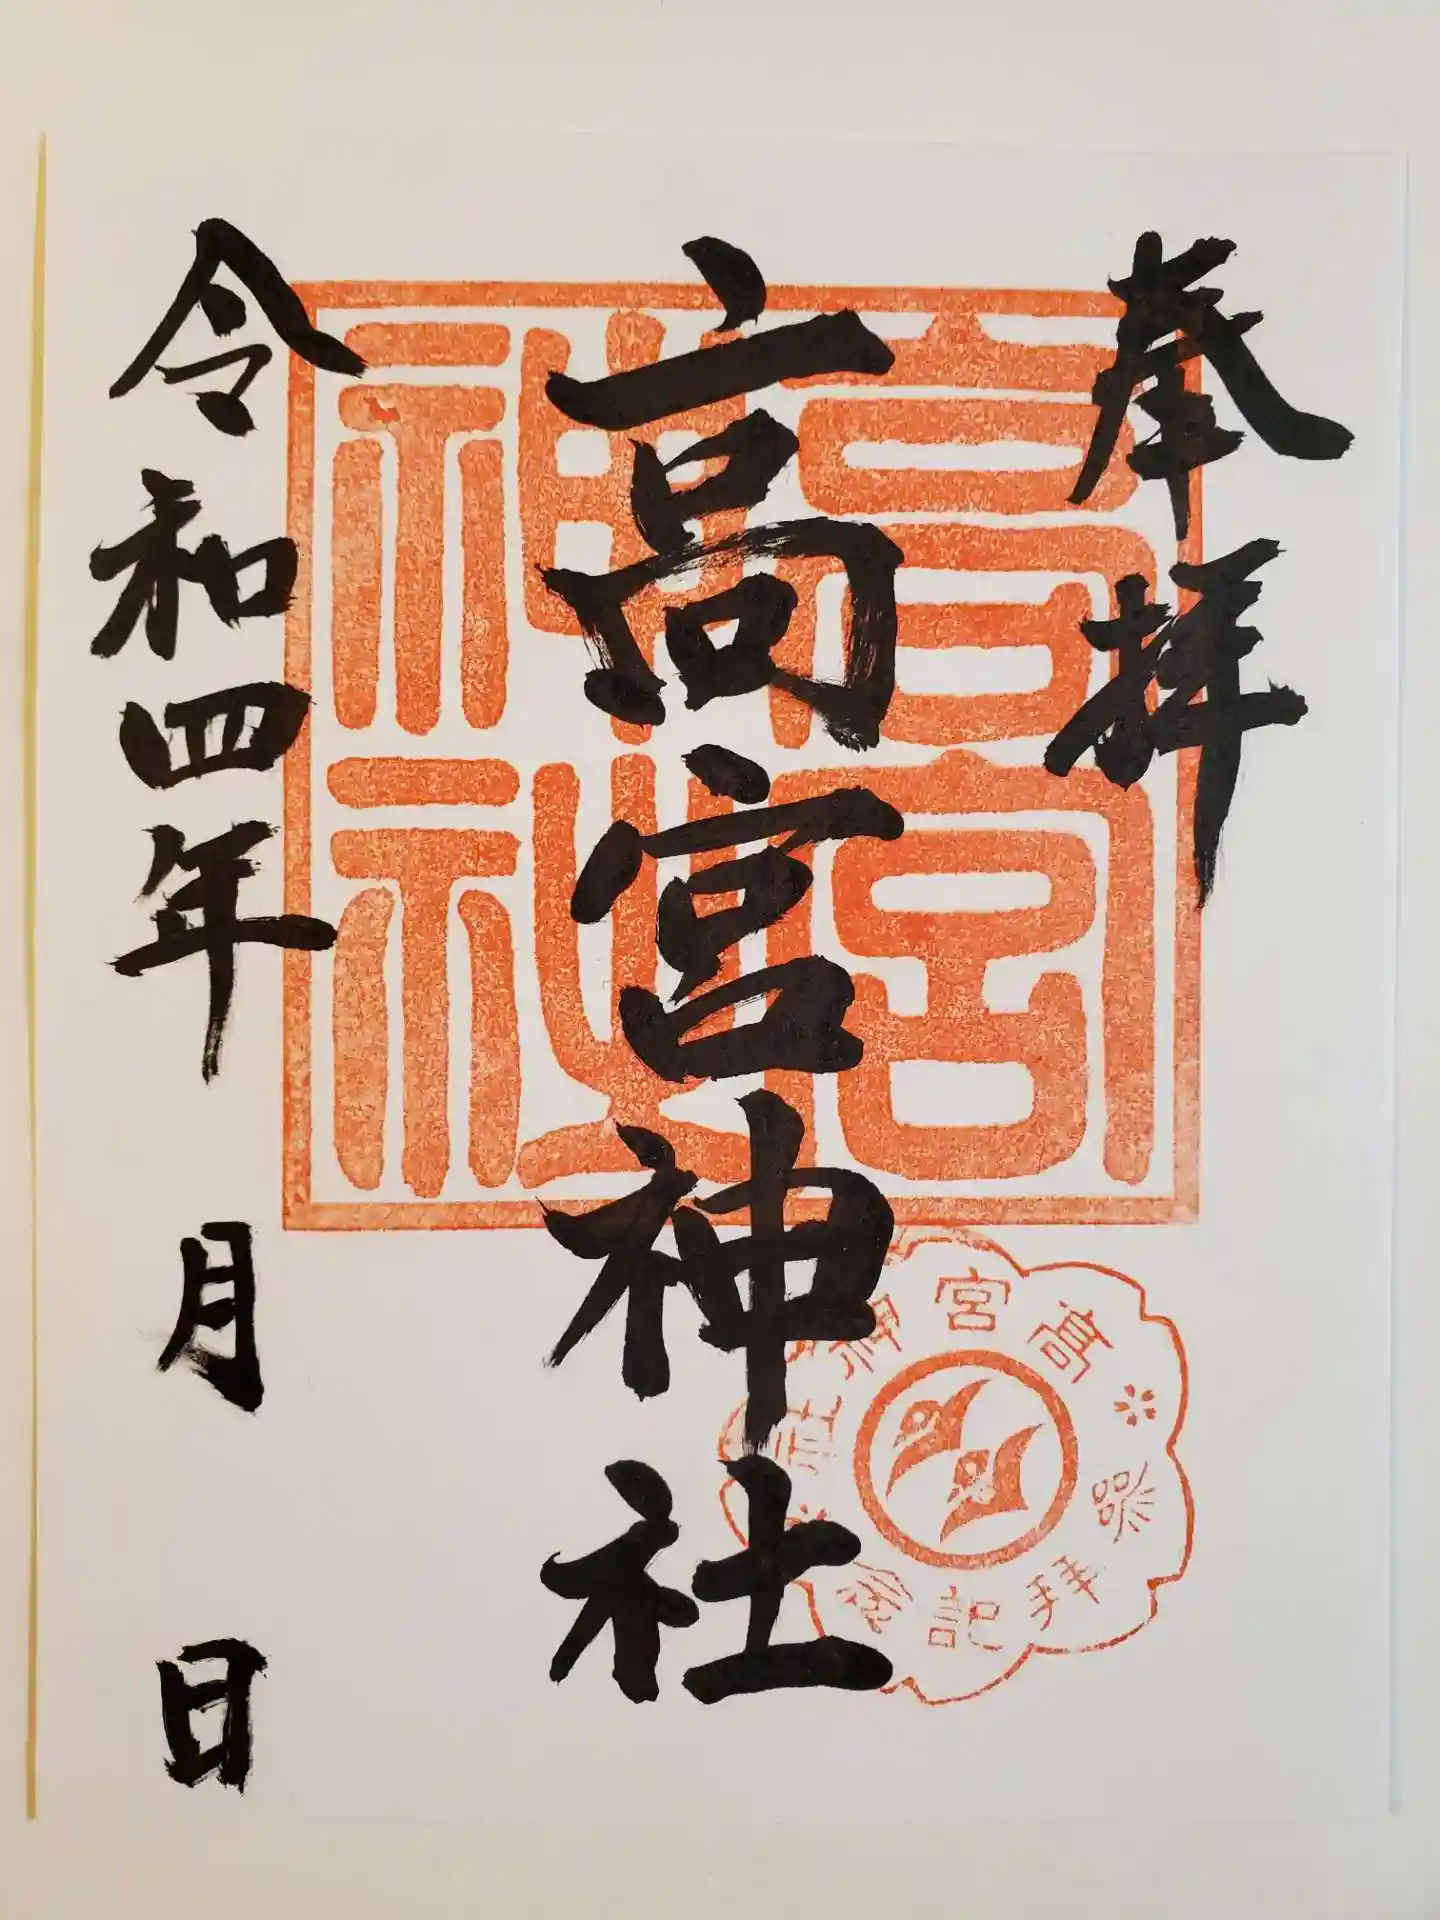 奉拝
高宮神社
令和四年 月 日
高宮
神社
高宮神社
参拜記念